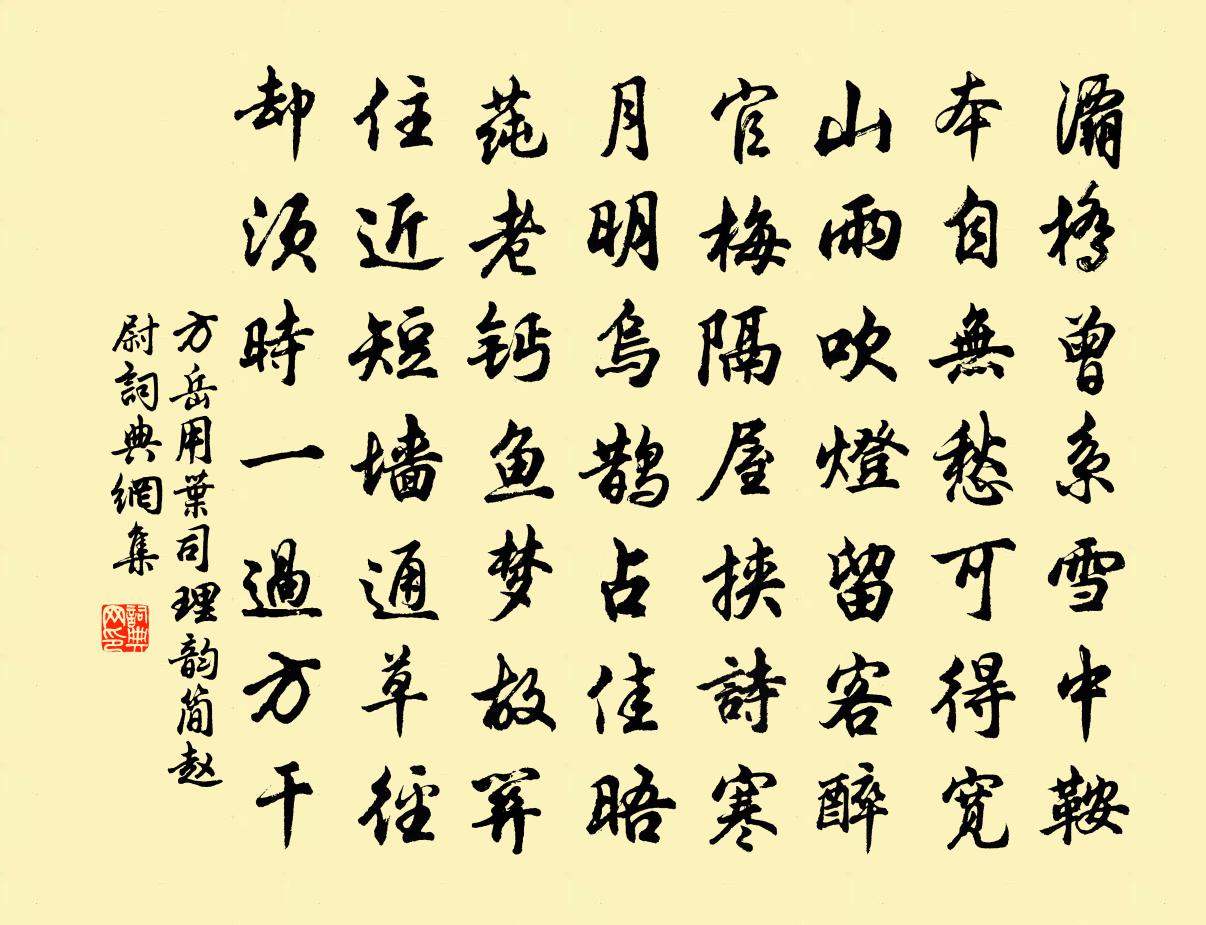 灞橋曾系雪中鞍
本自無愁可得寬
山雨吹燈留客醉
官梅隔屋挾詩寒
月明烏鵲占佳晤
莼老钙鱼梦故
住近短墙通草徑
却須時一過方干
方岳用葉司理韵简赵
尉詞典網集
詞典网印